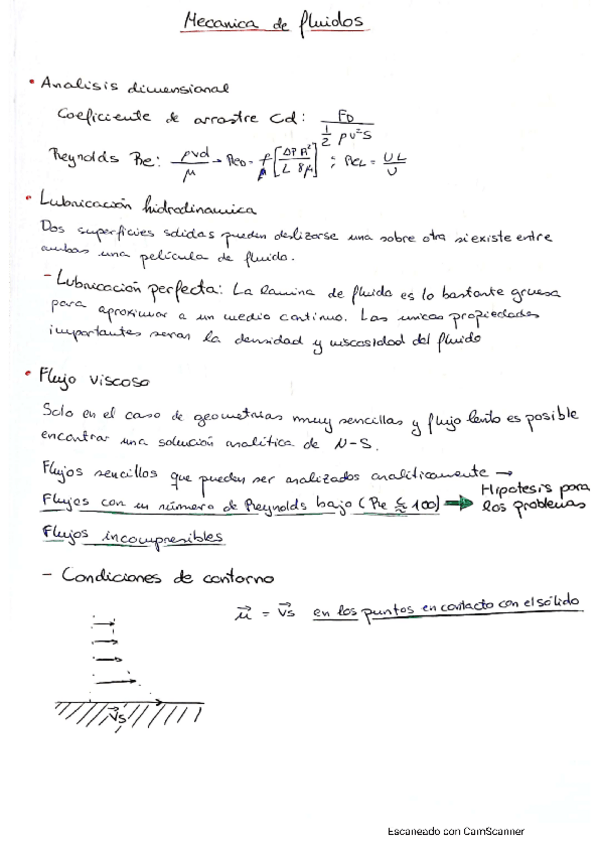 Mecanica de fluidos
• Analisis dimensional
Coeficiente de arrastre Cd: FD / ½ ρv²S
Reynolds Re: ρvd / μ → ReD = ρ/μ [ΔP R² / L 8μ] ; ReL = UL / υ
• Lubricación hidrodinamica
Dos superficies solidas pueden deslizarse una sobre otra si existe entre
ambas una película de fluido.
- Lubricación perfecta: La lamina de fluido es lo bastante gruesa
para aproximar a un medio continuo. Las unicas propiedades
importantes seran la densidad y viscosidad del fluido
• Flujo viscoso
Solo en el caso de geometrias muy sencillas y flujo lento es posible
encontrar una solución analítica de N-S.
Flujos sencillos que pueden ser analizados analíticamente →
Flujos con un número de Reynolds bajo (Re ≲ 100) → Hipotesis para
los problemas
Flujos incompresibles
- Condiciones de contorno
μ⃗ = v⃗s en los puntos en contacto con el sólido
v⃗s
Escaneado con CamScanner